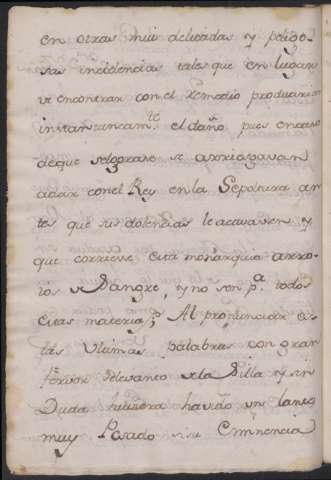 en otras mui delicadas y peligo-
sas incidencias tales que en lugar
de encontrar con el remedio produciria
instantaneam.te el daño, pues en caso
de que se lograse se arriezgavan
a dar con el Rey en la Sepoltura an
tes que sus dolencias le acavasen y
que corriese esta monarquia arro-
ios de Sangre, y no son p.a todos
estas materias; Al pronunciar es
tas vltimas palabras con gran
feruor se levanto de la Silla y sin
Duda huviera havido vn lance
muy Pesado si su Eminencia